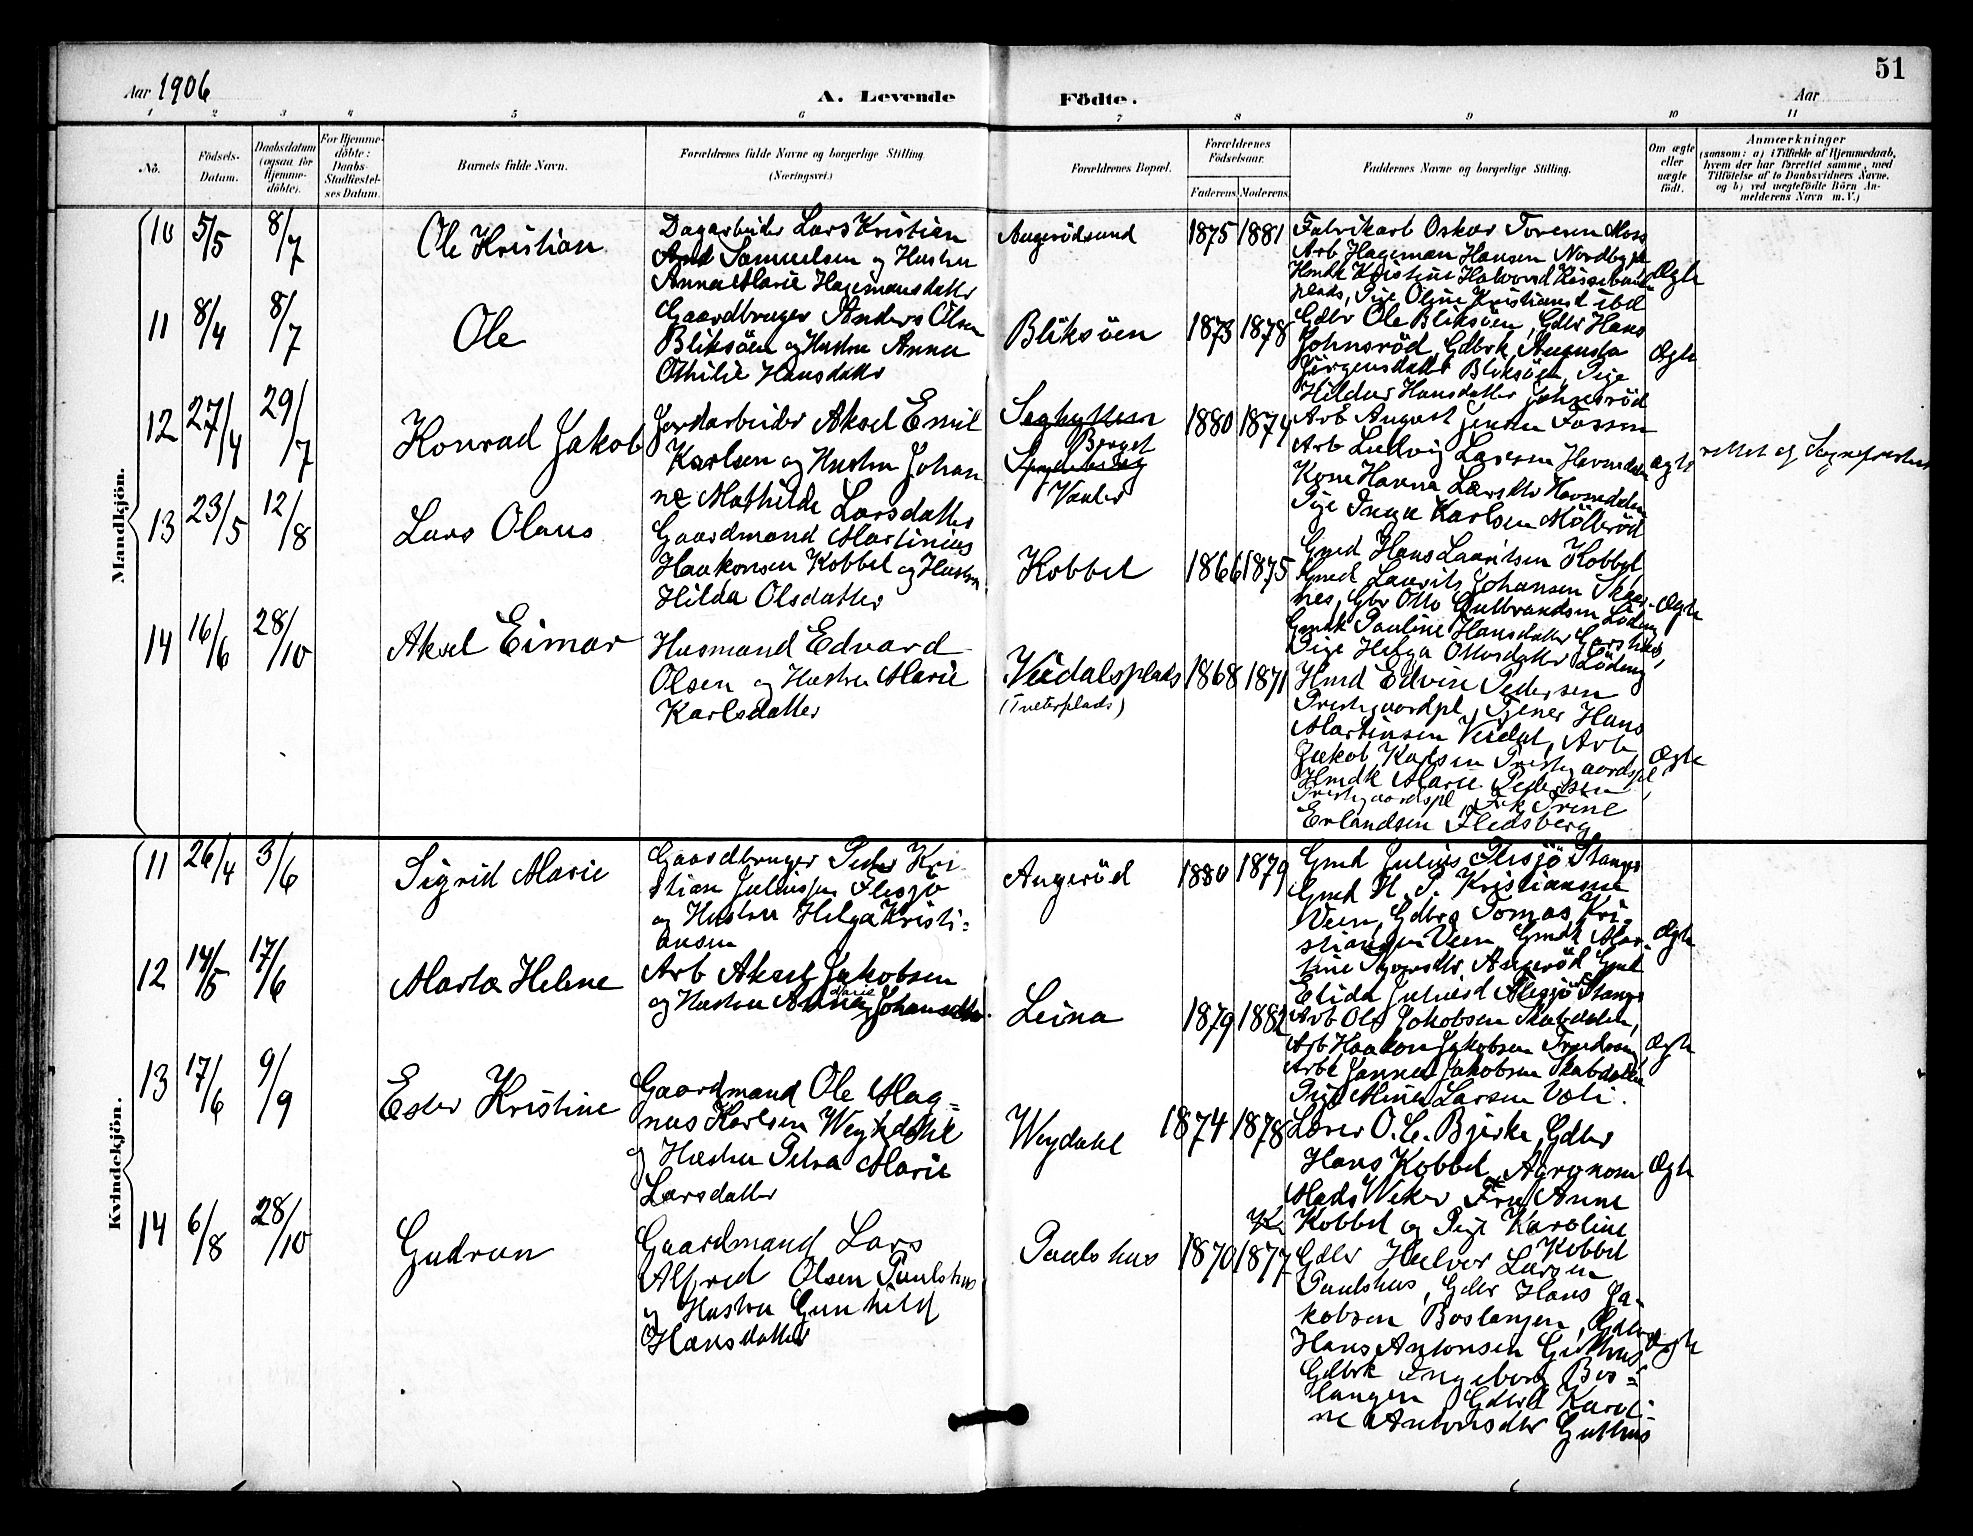 Aar 1906
A. Levende
Födte.
Aar
51
1 2 3 4 5 6 7 8 9 10 11
No.
Födsels-
Datum.
Daabsdatum
(ogsaa for
Hjemme-
döbte).
For Hjemme-
döbte:
Daabs-
Stadfæstel-
ses Datum.
Barnets fulde Navn.
Forældrenes fulde Navne og borgerlige Stilling.
(Næringsvei.)
Forældrenes Bopæl.
Forældrenes
Födselsaar.
Faderens.
Moderens.
Faddernes Navne og borgerlige Stilling.
Om ægte
eller
uægte
födt.
Anmærkninger
(saasom: a) i Tilfælde af Hjemmedaab,
hvem der har forrettet samme, med
Tilföielse af to Daabsvidners Navne.
og b) ved uægtefödte Börn An-
melderens Navn m. V.)
Mandkjön.
10 5/5 8/7
Ole Kristian
Dagarbeider Lars Kristian
Samuelsen og Hustru
Anna Marie Hagemansdatter
Angerödsund
1875 1881
Fabrikarb Oskar Toresen Moss
Arb Hageman Hansen Nordbypl
Hmdk Kristine Halvorsd
plads, Pige Oline Kristiansd ibd
Ægte
11 8/4 8/7
Ole
Gaardbruger Anders Olsen
Bliksöen og Hustru Anna
Othilie Hansdatter
Bliksöen
1873 1878
Gdbr Ole Bliksöen, Gdbr Hans
Johnsröd, Gdbrk Augusta
Jörgensdatter Bliksöen, Pige
Hildur Hansdatter Johnsröd
Ægte
12 27/4 29/7
Konrad Jakob
Jordarbeider Aksel Emil
Karlsen og Hustru Johan
ne Mathilde Larsdatter
Berget
Vanter
1880 1874
Arb August Jensen Fossen
Arb Ludvig Larsen
Kone Hanna Larsdtr
Pige Inga Karlsen Mölleröd
Ægte
rettet af Sognepresten
13 23/5 12/8
Lars Olaus
Gaardmand Martinius
Haakonsen Kobbel og Hustru
Hilda Olsdatter
Kobbel
1866 1875
Gmd Hans Lauritsen Kobbel
Gmd Laurits Johansen
nes, Gbr Otto Gulbrandsen Lödeng
Gmdk Pauline Hansdatter
Pige Helga Ottosdatter Lödeng
Ægte
14 16/6 28/10
Aksel Eimar
Husmand Edvard
Olsen og Hustru Marie
Karlsdatter
Veidalsplads
(Tveterplads)
1868 1871
Hmd Edvin Pedersen
Prestegaardpl, Tjener Hans
Martinsen Veidal, Arb
Jakob Karlsen Prestegaardspl,
Hmdk Marie Pedersen
Prestegaardspl, Frk Trine
Erlandsen Fledsberg
Ægte
Kvindekjön.
11 26/4 3/6
Sigrid Marie
Gaardbruger Peder Kri
stian Juliussen Flesjö
og Hustru Helga Kristi-
ansen
Angeröd
1880 1879
Gmd Julius Flesjö Stange
Gmd H. P. Kristiansen
Veen, Gdbr Tomas Kri-
stiansen Veen Gmdk Mar-
tine Angeröd
Elida Juliusd Flesjö Stange
Ægte
12 14/5 17/6
Marta Helene
Arb Aksel Jakobsen
og Hustru Anna Marie Johansdtr.
Leina
1879 1882
Arb Ole Jakobsen Skabdalen,
Arb Haakon Jakobsen
Arbk Janna Jakobsen Skabdalen
Pige Mina Larsen
Ægte
13 17/6 9/9
Ester Kristine
Gaardmand Ole Mag-
nus Karlsen Weydahl
og Hustru Petra Marie
Larsdatter
Weydahl
1874 1878
Lærer O. C. Bjerke, Gdbr
Hans Kobbel, Agronom
Mads Weker Frk Anne
Kobbel og Pige Karoline
Kobbel
Ægte
14 6/8 28/10
Gudrun
Gaardmand Lars
Alfred Olsen Paulshus
og Hustru Gunhild
Hansdatter
Paulshus
1870 1877
Gdbr Halvor Larsen
Paulshus, Gdbr Hans Ja-
kobsen Boslangen, Gdbr
Hans Antonsen Guthus
Gdbrk Ingeborg Bos-
langen Gdbrk Karoli-
ne Antonsdtr Guthus
Ægte